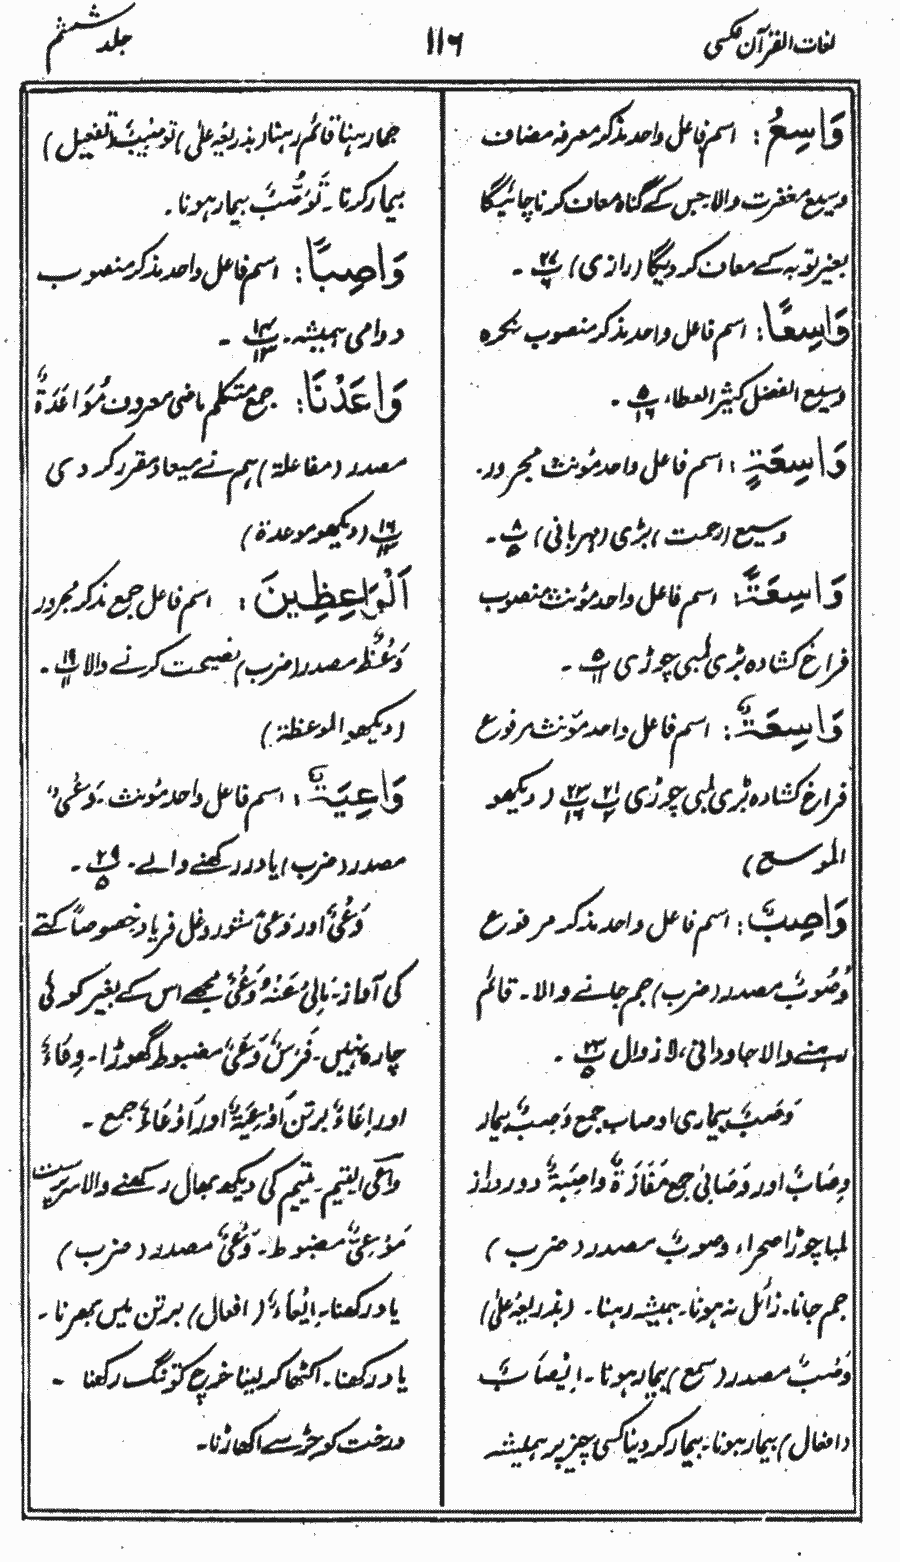 لغات القرآن فکسی
۱۱۶
جلد ششم
وَاسِعُ : اسم فاعل واحد مذکر معرفہ مضاف
وسیع مغفرت والا جس کے گناہ معاف کرنا چاہیگا
بغیر توبہ کے معاف کر دیگا (رازی) پ ۲۷ ۔
وَاسِعًا : اسم فاعل واحد مذکر منصوب نکرہ
وسیع الفضل کثیر العطاء ۵/۱۶ ۔
وَاسِعَةٍ : اسم فاعل واحد مؤنث مجرور۔
وسیع (رحمت) بڑی (مہربانی) ۸/۵ ۔
وَاسِعَةً : اسم فاعل واحد مؤنث منصوب
فراخ کشادہ بڑی لمبی چوڑی ۵/۱۱ ۔
وَاسِعَةٌ : اسم فاعل واحد مؤنث مرفوع
فراخ کشادہ بڑی لمبی چوڑی ۲۱/۲ ۲۳/۱۶ (دیکھو
الموسع)
وَاصِبٌ : اسم فاعل واحد مذکر مرفوع
وُصُوبٌ مصدر (ضرب) جم جانے والا۔ قائم
رہنے والا جاودانی، لازوال ۲۳/۵ ۔
وَصَبٌ بیماری اوصاب جمع وَصِبٌ بیمار
وِصَابٌ اور وَصَابیٰ جمع مَفَازَةٌ واصِبَةٌ دور دراز
لمبا چوڑا صحراء وصوبٌ مصدر (ضرب)
جم جانا۔ زائل نہ ہونا۔ ہمیشہ رہنا۔ (بذریعہ علیٰ)
وَصَبٌ مصدر (سمع) بیمار ہونا۔ اِیْصَابٌ
(افعال) بیمار ہونا۔ بیمار کر دینا کسی چیز پر ہمیشہ
جما رہنا قائم رہنا (بذریعہ علیٰ) تَوْصِیْبٌ (تفعیل)
بیمار کرنا۔ تَوَصُّبٌ بیمار ہونا۔
وَاصِبًا : اسم فاعل واحد مذکر منصوب
دوامی ہمیشہ۔ ۱۴/۱۳ ۔
وَاعَدْنَا : جمع متکلم ماضی معروف مُوَاعَدَةٌ
مصدر (مفاعلة) ہم نے میعاد مقرر کر دی
۱۶/۱۳ (دیکھو موعدة)
اَلْوَاعِظِينَ : اسم فاعل جمع مذکر مجرور
وَعْظٌ مصدر (ضرب) نصیحت کرنے والا ۱۹/۱۱ ۔
(دیکھو الموعظة)
وَاعِيَةٌ : اسم فاعل واحد مؤنث۔ وَعْیٌ
مصدر (ضرب) یاد رکھنے والے۔ ۲۹/۵ ۔
وَعْیٌ اور وَعیٰ شور و غل فریاد خصوصاً کتے
کی آواز۔ مَالِیْ عَنْهُ وَعْیٌ مجھے اس کے بغیر کوئی
چارہ نہیں۔ فَرَسٌ وَعیٰ مضبوط گھوڑا۔ وِعَاءٌ
اور اِعَاءٌ برتن اَوْعِیَةٌ اور اَوْعَاءٌ جمع ۔
واعی الیتیم۔ یتیم کی دیکھ بھال رکھنے والا سرپرست
مَوْعِیٌّ مضبوط۔ وَعْیٌ مصدر (ضرب)
یاد رکھنا۔ اِیْعَاءٌ (افعال) برتن میں بھرنا ۔
یاد رکھنا۔ اکٹھا کر لینا خرچ کو تنگ رکھنا ۔
درخت کو جڑ سے اکھاڑنا۔